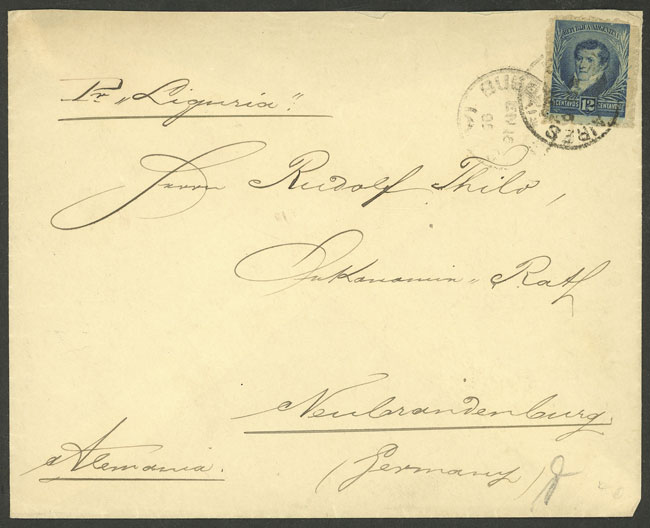 Pr „Liguria".
REPUBLICA ARGENTINA
CENTAVOS 12 CENTAVOS
BUENOS AIRES
Herrn Rudolf Thilo,
Oekonomie-Rath
Neubrandenburg
Alemania.
(Germany)